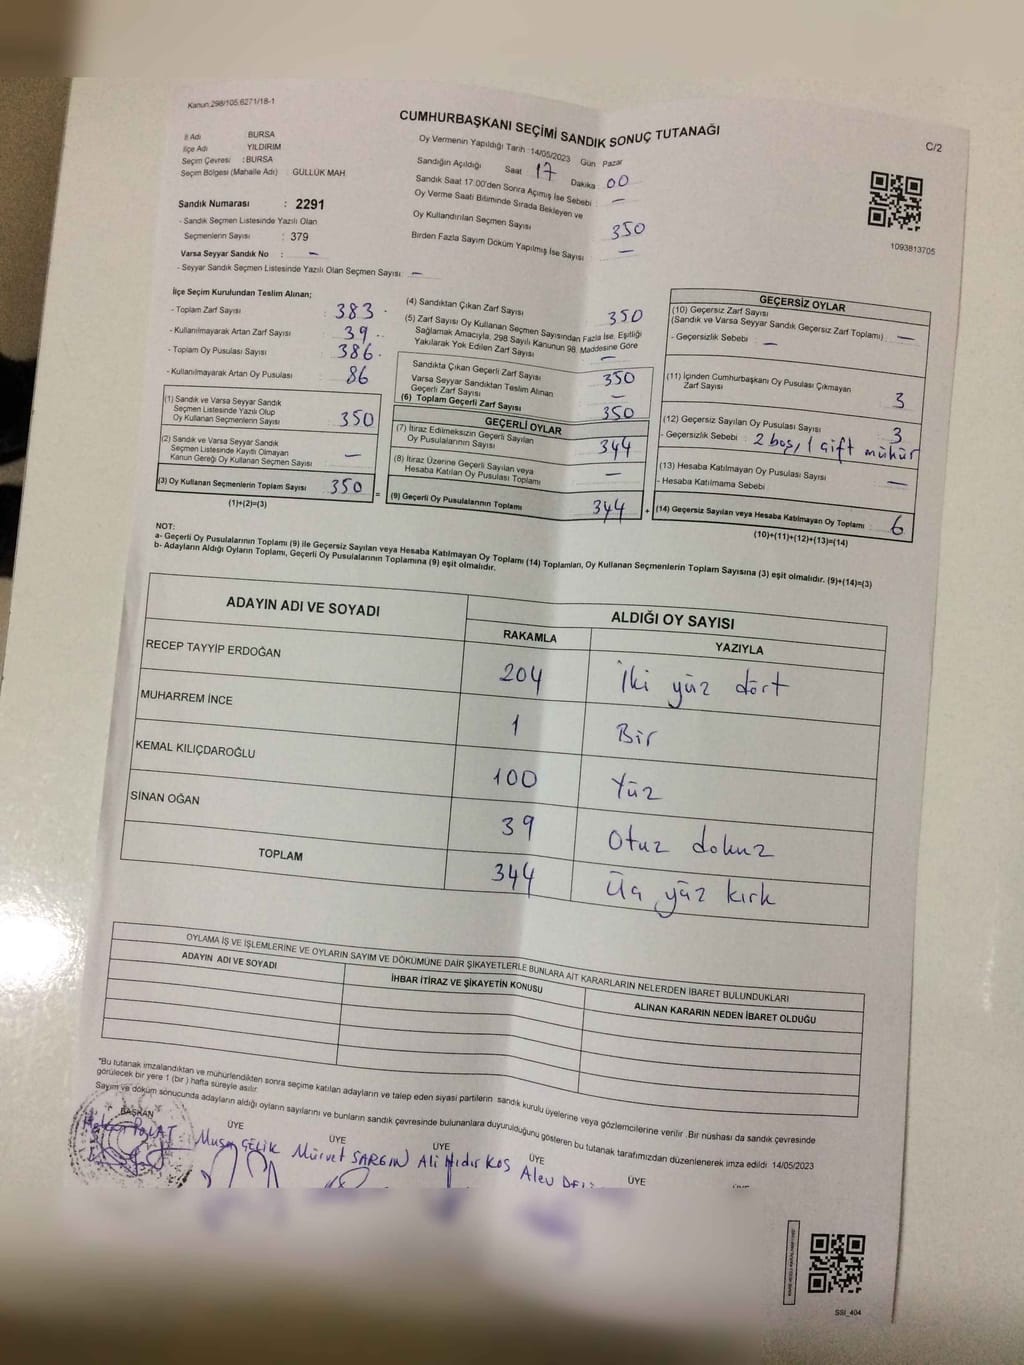 Kanun.298/105,6271/18-1
CUMHURBAŞKANI SEÇİMİ SANDIK SONUÇ TUTANAĞI
C/2
İl Adı BURSA
İlçe Adı YILDIRIM
Seçim Çevresi : BURSA
Seçim Bölgesi (Mahalle Adı) : GÜLLÜK MAH.
Sandık Numarası : 2291
- Sandık Seçmen Listesinde Yazılı Olan
Seçmenlerin Sayısı : 379
Varsa Seyyar Sandık No : –
- Seyyar Sandık Seçmen Listesinde Yazılı Olan Seçmen Sayısı : –
Oy Vermenin Yapıldığı Tarih : 14/05/2023 Gün Pazar
Sandığın Açıldığı Saat 17 Dakika : 00
Sandık Saat 17:00'den Sonra Açımış İse Sebebi : –
Oy Verme Saati Bitiminde Sırada Bekleyen ve
Oy Kullandırılan Seçmen Sayısı 350
Birden Fazla Sayım Döküm Yapılmış İse Sayısı –
1093813705
İlçe Seçim Kurulundan Teslim Alınan;
- Toplam Zarf Sayısı : 383
- Kullanılmayarak Artan Zarf Sayısı : 39
- Toplam Oy Pusulası Sayısı : 386
- Kullanılmayarak Artan Oy Pusulası : 86
(1) Sandık ve Varsa Seyyar Sandık
Seçmen Listesinde Yazılı Olup
Oy Kullanan Seçmenlerin Sayısı 350
(2) Sandık ve Varsa Seyyar Sandık
Seçmen Listesinde Kayıtlı Olmayan
Kanun Gereği Oy Kullanan Seçmen Sayısı –
(3) Oy Kullanan Seçmenlerin Toplam Sayısı 350 =
(1)+(2)=(3)
(4) Sandıktan Çıkan Zarf Sayısı 350
(5) Zarf Sayısı Oy Kullanan Seçmen Sayısından Fazla İse, Eşitliği
Sağlamak Amacıyla, 298 Sayılı Kanunun 98. Maddesine Göre
Yakılarak Yok Edilen Zarf Sayısı –
Sandıkta Çıkan Geçerli Zarf Sayısı 350
Varsa Seyyar Sandıktan Teslim Alınan
Geçerli Zarf Sayısı –
(6) Toplam Geçerli Zarf Sayısı 350
GEÇERLİ OYLAR
(7) İtiraz Edilmeksizin Geçerli Sayılan
Oy Pusulalarının Sayısı 344
(8) İtiraz Üzerine Geçerli Sayılan veya
Hesaba Katılan Oy Pusulası Toplamı –
(9) Geçerli Oy Pusulalarının Toplamı 344 +
GEÇERSİZ OYLAR
(10) Geçersiz Zarf Sayısı
(Sandık ve Varsa Seyyar Sandık Geçersiz Zarf Toplamı) –
- Geçersizlik Sebebi : –
(11) İçinden Cumhurbaşkanı Oy Pusulası Çıkmayan
Zarf Sayısı 3
(12) Geçersiz Sayılan Oy Pusulası Sayısı 3
- Geçersizlik Sebebi : 2 boş, 1 çift mühür
(13) Hesaba Katılmayan Oy Pusulası Sayısı –
- Hesaba Katılmama Sebebi
(14) Geçersiz Sayılan veya Hesaba Katılmayan Oy Toplamı : 6
(10)+(11)+(12)+(13)=(14)
NOT:
a- Geçerli Oy Pusulalarının Toplamı (9) ile Geçersiz Sayılan veya Hesaba Katılmayan Oy Toplamı (14) Toplamları, Oy Kullanan Seçmenlerin Toplam Sayısına (3) eşit olmalıdır. (9)+(14)=(3)
b- Adayların Aldığı Oyların Toplamı, Geçerli Oy Pusulalarının Toplamına (9) eşit olmalıdır.
ADAYIN ADI VE SOYADI ALDIĞI OY SAYISI
RAKAMLA YAZIYLA
RECEP TAYYİP ERDOĞAN 204 İki yüz dört
MUHARREM İNCE 1 Bir
KEMAL KILIÇDAROĞLU 100 Yüz
SİNAN OĞAN 39 Otuz dokuz
TOPLAM 344 Üç yüz kırk
OYLAMA İŞ VE İŞLEMLERİNE VE OYLARIN SAYIM VE DÖKÜMÜNE DAİR ŞİKAYETLERLE BUNLARA AİT KARARLARIN NELERDEN İBARET BULUNDUKLARI
ADAYIN ADI VE SOYADI İHBAR İTİRAZ VE ŞİKAYETİN KONUSU ALINAN KARARIN NEDEN İBARET OLDUĞU
*Bu tutanak imzalandıktan ve mühürlendikten sonra seçime katılan adayların ve talep eden siyasi partilerin sandık kurulu üyelerine veya gözlemcilerine verilir .Bir nüshası da sandık çevresinde
görülecek bir yere 1 (bir ) hafta süreyle asılır.
Sayım ve döküm sonucunda adayların aldığı oyların sayılarını ve bunların sandık çevresinde bulunanlara duyurulduğunu gösteren bu tutanak tarafımızdan düzenlenerek imza edildi 14/05/2023
BAŞKAN ÜYE ÜYE ÜYE ÜYE ÜYE
POLAT Musa ÇELİK Mürvet SARGIN Ali Hıdır KOS Alev
SSI_404